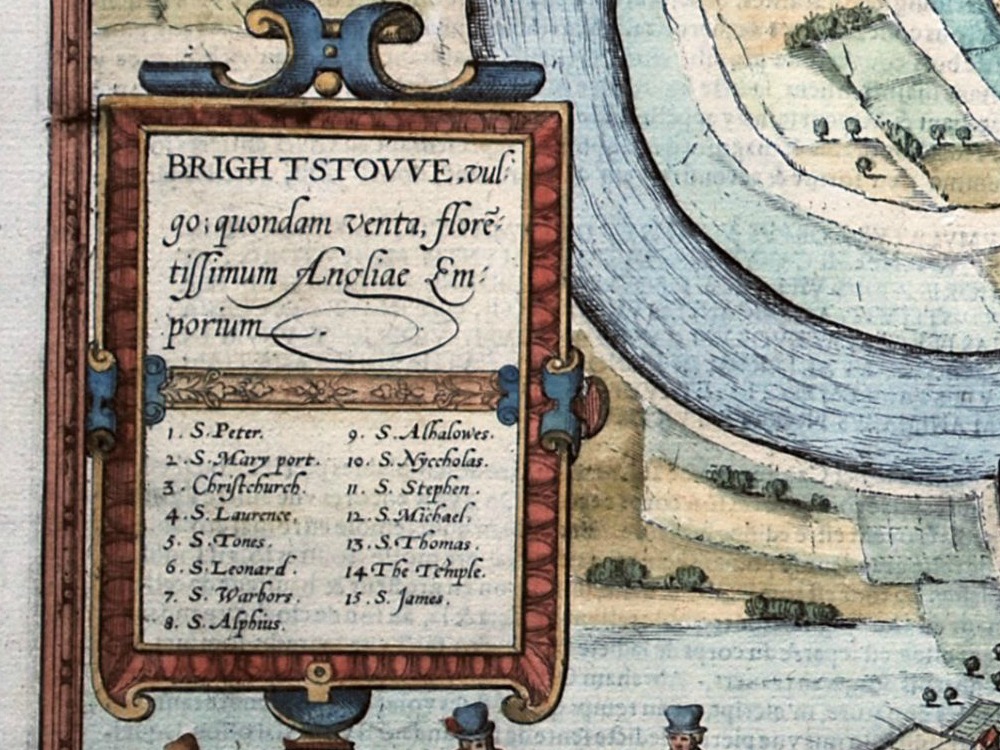 BRIGHTSTOVVE, vul-
go; quondam venta, florē-
tissimum Angliae Em-
porium.
1. S. Peter.
2. S. Mary port.
3. Christchurch.
4. S. Laurence.
5. S. Tones.
6. S. Leonard.
7. S. Warbors.
8. S. Alphius.
9. S. Alhalowes.
10. S. Nyccholas.
11. S. Stephen.
12. S. Michael.
13. S. Thomas.
14. The Temple.
15. S. James.